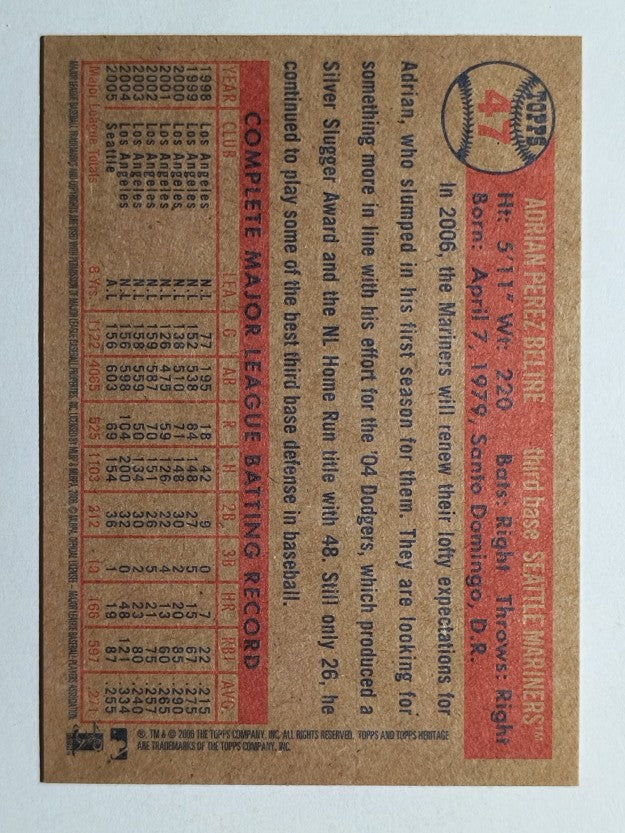 TOPPS
47
ADRIAN PEREZ BELTRE third base SEATTLE MARINERS™
Ht: 5'11" Wt: 220 Bats: Right Throws: Right
Born: April 7, 1979, Santo Domingo, D.R.
In 2006, the Mariners will renew their lofty expectations for
Adrian, who slumped in his first season for them. They are looking for
something more in line with his effort for the '04 Dodgers, which produced a
Silver Slugger Award and the NL Home Run title with 48. Still only 26, he
continued to play some of the best third base defense in baseball.
COMPLETE MAJOR LEAGUE BATTING RECORD
YEAR CLUB LEA. G AB R H 2B 3B HR RBI AVG.
1998 Los Angeles N.L. 77 195 18 42 9 0 7 22 .215
1999 Los Angeles N.L. 152 538 84 148 27 5 15 67 .275
2000 Los Angeles N.L. 138 510 71 148 30 2 20 85 .290
2001 Los Angeles N.L. 126 475 59 126 22 4 13 60 .265
2002 Los Angeles N.L. 159 587 70 151 26 5 21 75 .257
2003 Los Angeles N.L. 158 559 50 134 30 2 23 80 .240
2004 Los Angeles N.L. 156 598 104 200 32 0 48 121 .334
2005 Seattle A.L. 156 603 69 154 36 1 19 87 .255
Major League Totals 8 Yrs. 1122 4065 525 1103 212 19 166 597 .271
MAJOR LEAGUE BASEBALL TRADEMARKS AND COPYRIGHTS ARE USED WITH PERMISSION OF MAJOR LEAGUE BASEBALL PROPERTIES, INC. LICENSED BY MLBP & MLBPA, 2006. © MLBPA. OFFICIAL LICENSEE - MAJOR LEAGUE BASEBALL PLAYERS ASSOCIATION.
®, TM & © 2006 THE TOPPS COMPANY, INC. ALL RIGHTS RESERVED. TOPPS AND TOPPS HERITAGE
ARE TRADEMARKS OF THE TOPPS COMPANY, INC.